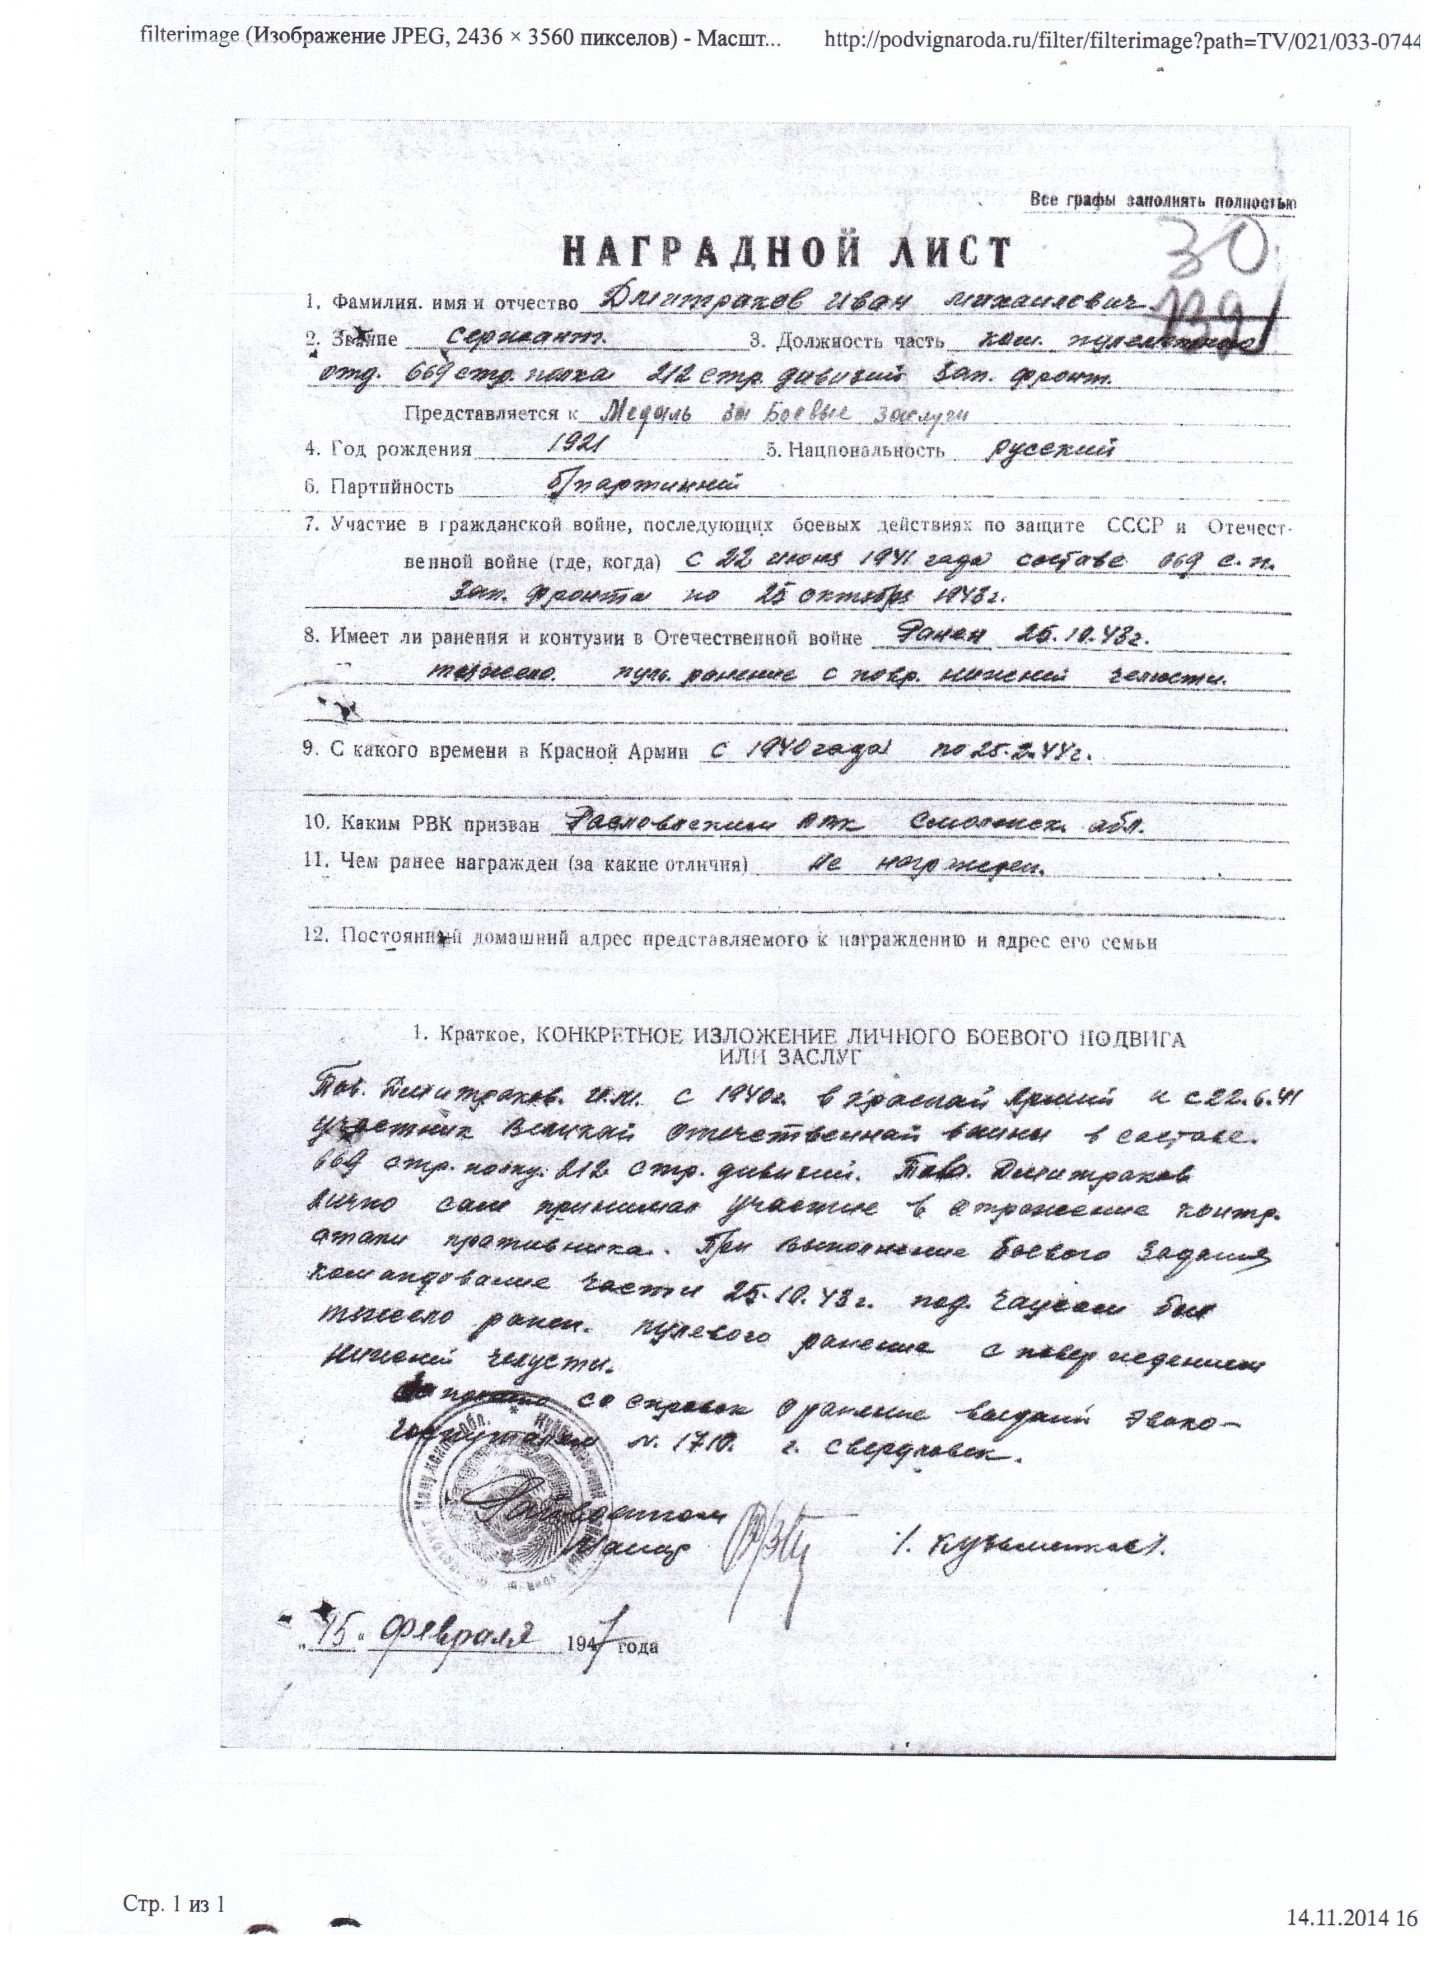 filterimage (Изображение JPEG, 2436 × 3560 пикселов) - Масшт... http://podvignaroda.ru/filter/filterimage?path=TV/021/033-0744
Все графы заполнять полностью
30
139
НАГРАДНОЙ ЛИСТ
1. Фамилия. имя и отчество Дмитраков Иван Михаилович
2. Звание сержант. 3. Должность часть ком. пулеметного
отд. 669 стр. полка 212 стр. дивизий Зап. фронт.
Представляется к Медаль за Боевые заслуги
4. Год рождения 1921 5. Национальность русский
6. Партийность б/партийный
7. Участие в гражданской войне, последующих боевых действиях по защите СССР и Отечест-
венной войне (где, когда) с 22 июня 1941 года составе 669 с.п.
Зап. фронта по 25 октября 1943 г.
8. Имеет ли ранения и контузии в Отечественной войне Ранен 25.10.43 г.
тяжело. пул. ранение с повр. нижней челюсти.
9. С какого времени в Красной Армии с 1940 года по 25.2.44 г.
10. Каким РВК призван Рославльским РВК Смоленск. обл.
11. Чем ранее награжден (за какие отличия) Не награжден.
12. Постоянный домашний адрес представляемого к награждению и адрес его семьи
1. Краткое, КОНКРЕТНОЕ ИЗЛОЖЕНИЕ ЛИЧНОГО БОЕВОГО ПОДВИГА
ИЛИ ЗАСЛУГ
Тов. Дмитраков. И.М. с 1940 г. в Красной Армий и с 22.6.41
участник Великой отечественной воины в составе.
669 стр. полку. 212 стр. дивизий. Тов. Дмитраков
лично сам принимал участие в отражение контр.
атаки противника. При выполнение боевого задания
командование части 25.10.43 г. под. Чаусам был
тяжело ранен. пулевого ранение с повреждением
нижней челусти.
со справок о ранение выданй эвако-
госпиталем N. 1710. г. Свердловск.
Райвоенком
Майор /. Кузьменков /.
„15" февраля 1947 года
Стр. 1 из 1
14.11.2014 16